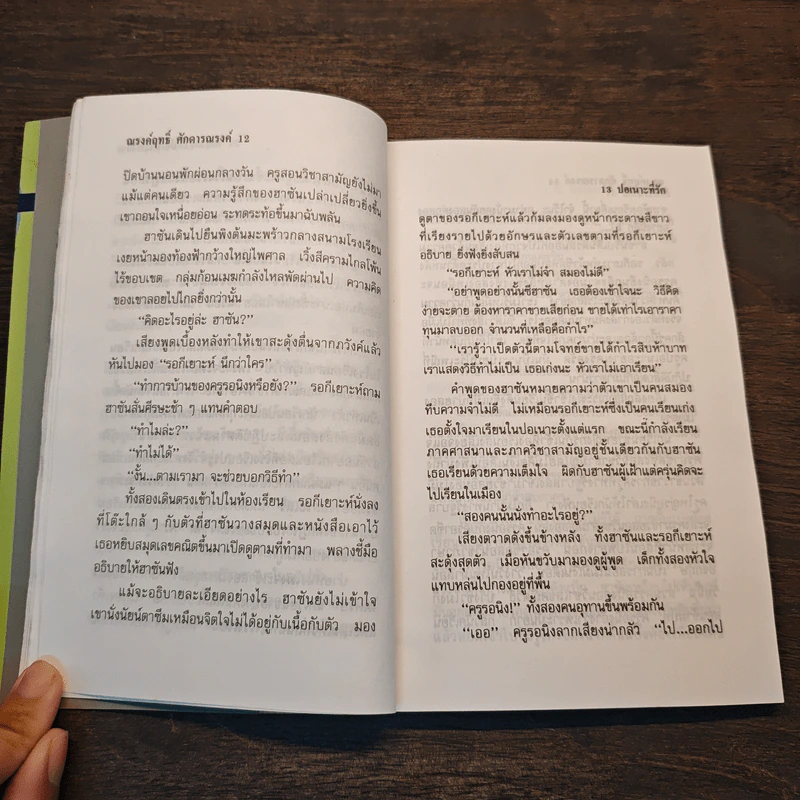 ณรงค์ฤทธิ์ ศักดารณรงค์ 12
ปิดบ้านนอนพักผ่อนกลางวัน ครูสอนวิชาสามัญยังไม่มา
แม้แต่คนเดียว ความรู้สึกของฮาซันเปล่าเปลี่ยวยิ่งขึ้น
เขาถอนใจเหนื่อยอ่อน ระทดระท้อขึ้นมาฉับพลัน
ฮาซันเดินไปยืนพิงต้นมะพร้าวกลางสนามโรงเรียน
เงยหน้ามองท้องฟ้ากว้างใหญ่ไพศาล เวิ้งสีครามไกลโพ้น
ไร้ขอบเขต กลุ่มก้อนเมฆกำลังไหลพัดผ่านไป ความคิด
ของเขาลอยไปไกลยิ่งกว่านั้น
“คิดอะไรอยู่ล่ะ ฮาซัน?”
เสียงพูดเบื้องหลังทำให้เขาสะดุ้งตื่นจากภวังค์แล้ว
หันไปมอง “รอกีเยาะห์ นึกว่าใคร”
“ทำการบ้านของครูรอนิงหรือยัง?” รอกีเยาะห์ถาม
ฮาซันสั่นศีรษะช้า ๆ แทนคำตอบ
“ทำไมล่ะ?”
“ทำไม่ได้”
“งั้น...ตามเรามา จะช่วยบอกวิธีทำ”
ทั้งสองเดินตรงเข้าไปในห้องเรียน รอกีเยาะห์นั่งลง
ที่โต๊ะใกล้ ๆ กับตัวที่ฮาซันวางสมุดและหนังสือเอาไว้
เธอหยิบสมุดเลขคณิตขึ้นมาเปิดดูตามที่ทำมา พลางชี้มือ
อธิบายให้ฮาซันฟัง
แม้จะอธิบายละเอียดอย่างไร ฮาซันยังไม่เข้าใจ
เขานั่งนัยน์ตาซึมเหมือนจิตใจไม่ได้อยู่กับเนื้อกับตัว มอง
13 ปอเนาะที่รัก
ดูตาของรอกีเยาะห์แล้วก้มลงมองดูหน้ากระดาษสีขาว
ที่เรียงรายไปด้วยอักษรและตัวเลขตามที่รอกีเยาะห์
อธิบาย ยิ่งฟังยิ่งสับสน
“รอกีเยาะห์ หัวเราไม่จำ สมองไม่ดี”
“อย่าพูดอย่างนั้นซีฮาซัน เธอต้องเข้าใจนะ วิธีคิด
ง่ายจะตาย ต้องหาราคาขายเสียก่อน ขายได้เท่าไรเอาราคา
ทุนมาลบออก จำนวนที่เหลือคือกำไร”
“เรารู้ว่าเป็ดตัวนี้ตามโจทย์ขายได้กำไรสิบห้าบาท
เราแสดงวิธีทำไม่เป็น เธอเก่งนะ หัวเราไม่เอาเรียน”
คำพูดของฮาซันหมายความว่าตัวเขาเป็นคนสมอง
ทึบความจำไม่ดี ไม่เหมือนรอกีเยาะห์ซึ่งเป็นคนเรียนเก่ง
เธอตั้งใจมาเรียนในปอเนาะตั้งแต่แรก ขณะนี้กำลังเรียน
ภาคศาสนาและภาควิชาสามัญอยู่ชั้นเดียวกันกับฮาซัน
เธอเรียนด้วยความเต็มใจ ผิดกับฮาซันผู้เฝ้าแต่ครุ่นคิดจะ
ไปเรียนในเมือง
“สองคนนั้นนั่งทำอะไรอยู่?”
เสียงตวาดดังขึ้นข้างหลัง ทั้งฮาซันและรอกีเยาะห์
สะดุ้งสุดตัว เมื่อหันขวับมามองดูผู้พูด เด็กทั้งสองหัวใจ
แทบหล่นไปกองอยู่ที่พื้น
“ครูรอนิง!” ทั้งสองคนอุทานขึ้นพร้อมกัน
“เออ” ครูรอนิงลากเสียงน่ากลัว “ไป...ออกไป